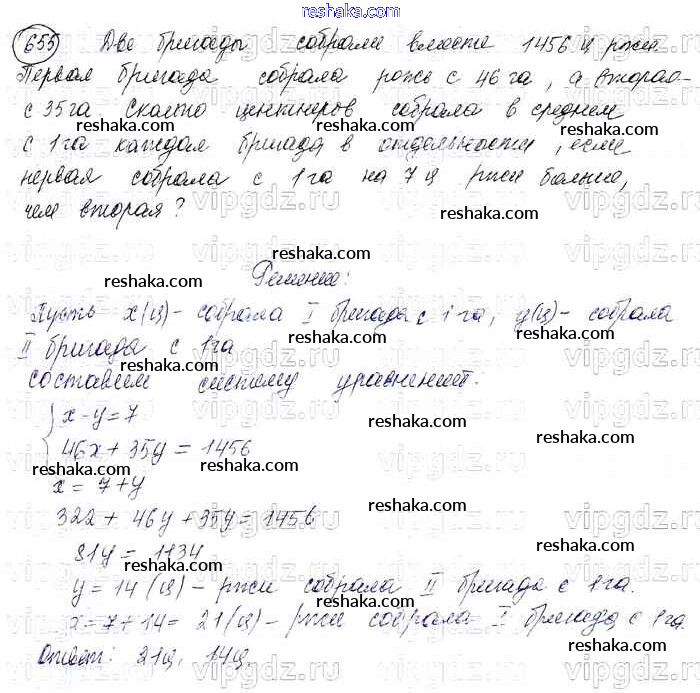 reshaka.com
655 Две бригады собрали вместе 1456 ц ржи.
Первая бригада собрала рожь с 46 га, а вторая-
с 35 га Сколько центнеров собрала в среднем
reshaka.com reshaka.com
с 1 га каждая бригада в отдельности, если
первая собрала с 1 га на 7 ц ржи больше,
reshaka.com reshaka.com
чем вторая?
reshaka.com
vipgdz.ru vipgdz.ru vipgdz.ru
reshaka.com
Решение:
reshaka.com
Пусть x(ц)- собрала I бригада с 1 га, y(ц)- собрала
II бригада с 1 га
reshaka.com reshaka.com
составим систему уравнений.
vipgdz.ru vipgdz.ru vipgdz.ru
x-y=7
reshaka.com
46x+35y=1456
reshaka.com reshaka.com
x=7+y
reshaka.com
322+46y+35y=1456
vipgdz.ru vipgdz.ru vipgdz.ru
81y=1134
reshaka.com
y=14 (ц)- ржи собрала II бригада с 1 га.
reshaka.com
x=7+14=21(ц)- ржи собрала I бригада с 1 га.
reshaka.com
Ответ: 21ц, 14ц.
reshaka.com